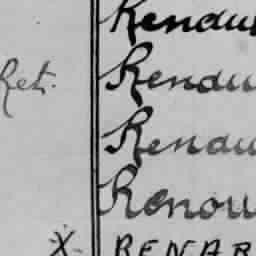 Rendu
Ret. Rendu
Rendu
Renou
X RENAR